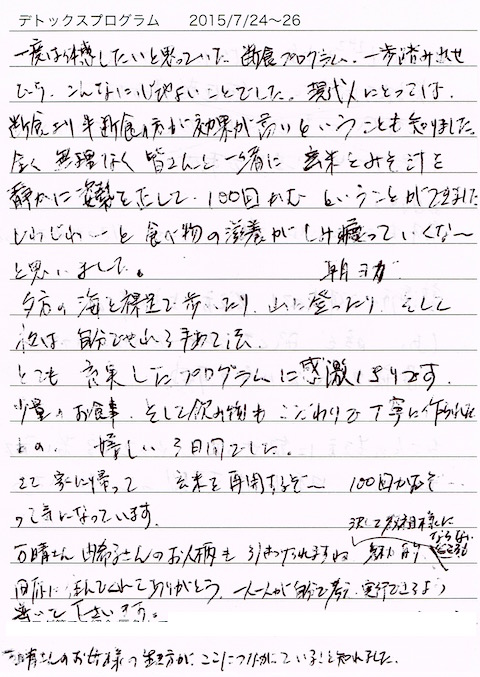 デトックスプログラム　2015/7/24～26
一度は体感したいと思っていた 断食プログラム、一歩踏み出せ
たら、こんなに心地よいことでした。現代人にとっては、
断食より半断食の方が効果が高いということも知りました。
全く無理なく皆さんと一緒に 玄米とみそ汁を
静かに姿勢を正して、100回かむ ということができました
じわじわーっと食べ物の滋養がしみ渡っていくな～
と思いました。 朝ヨガ
夕方の海を裸足で歩いたり、山に登ったり、そして
夜は自分でやれる手当て法、
とても充実したプログラムに感激しきりです。
少量のお食事、そして飲み物も こだわりで丁寧に作られた
もの、嬉しい3日間でした。
さて家に帰って 玄米を再開するぞ～ 100回かむぞ
って気になっています。
さんのお人柄も
ありがとう、一人一人が自分で考え、実行できるよう
導いて下さいます。
さんのお母様の生き方が、ここにつながっていることを知れました。